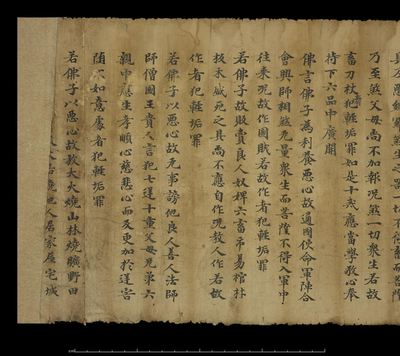 乃至煞父母尚不加報況煞一切衆生若故
畜刀杖犯輕垢罪如是十戒應當學敬心奉
持下六品中廣開
佛言佛子為利養惡心故通國使命軍陣合
會興師相煞无量衆生而菩薩不得入軍中
往來況故作國賊若故作者犯輕垢罪
若佛子故販賣良人奴婢六畜市易棺材
板木盛死之具尚不應自作況教人作若故
作者犯輕垢罪
若佛子以惡心故无事謗他良人善人法師
師僧國王貴人言犯七逆十重父母兄弟六
親中應生孝順心慈悲心而反更加於逆害
墮不如意處者犯輕垢罪
若佛子以惡心故放大火燒山林燒曠野田
燒他人居家屋宅城